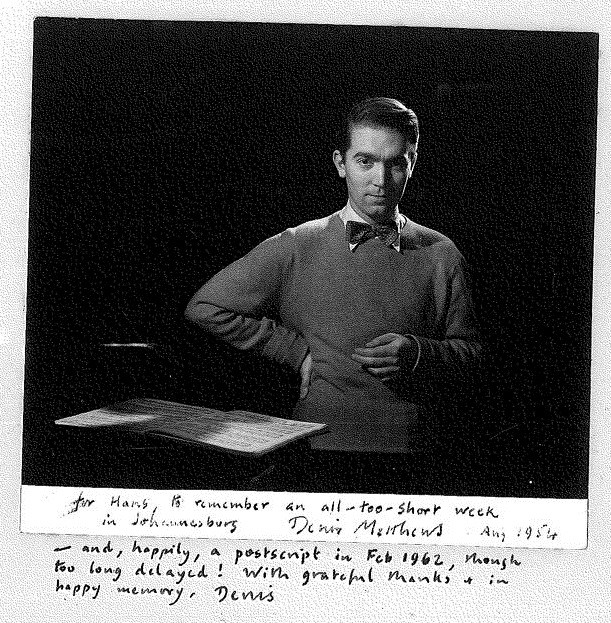 for Hans, to remember an all-too-short week
in Johannesburg Denis Matthews Aug 1954
— and, happily, a postscript in Feb 1962, though
too long delayed! With grateful thanks & in
happy memory, Denis